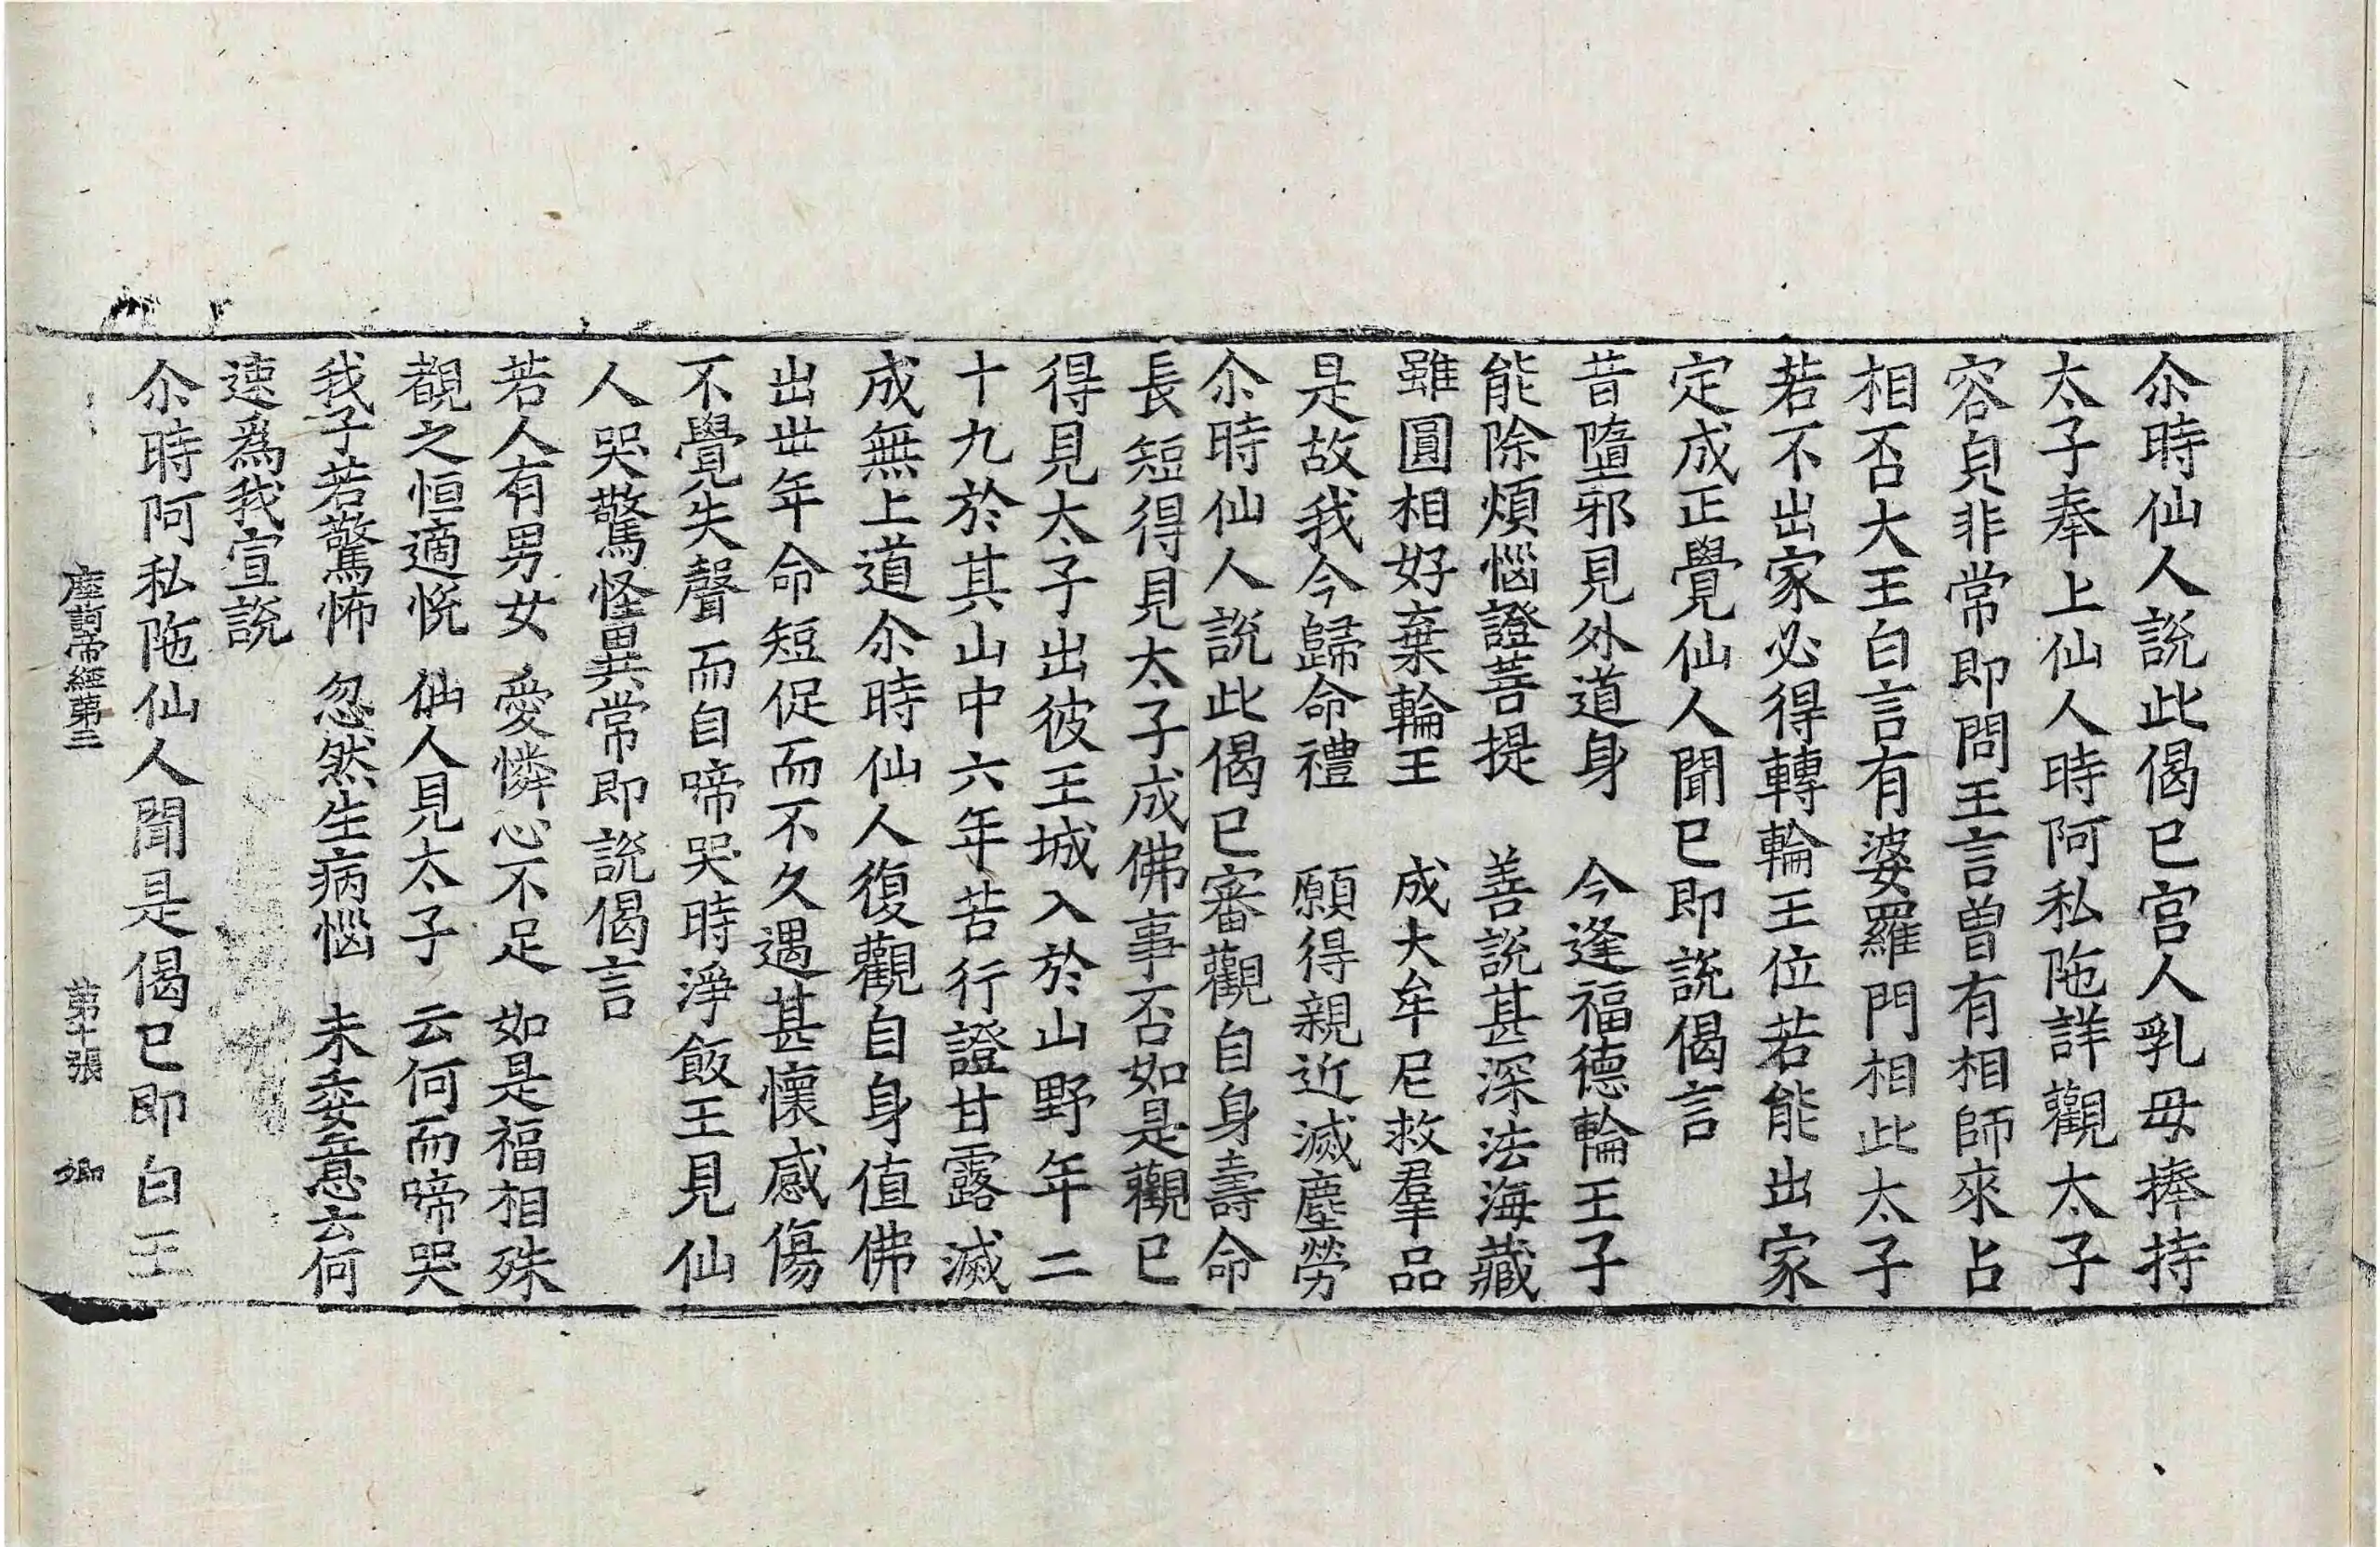 尒時仙人說此偈已宫人乳母捧持
太子奉上仙人時阿私陁詳觀太子
容皃非常即問王言曾有相師來占
相否大王白言有婆羅門相此太子
若不出家必得轉輪王位若能出家
定成正覺仙人聞已即說偈言
昔墮邪見外道身　今逢福德輪王子
能除煩惱證菩提　善説甚深法海藏
雖圓相好棄輪王　成大牟尼救羣品
是故我今歸命禮　願得親近滅塵勞
尒時仙人說此偈已審觀自身壽命
長短得見太子成佛事否如是觀已
得見太子出彼王城入於山野年二
十九於其山中六年苦行證甘露滅
成無上道尒時仙人復觀自身值佛
出丗年命短促而不久遇甚懷感傷
不覺失聲而自啼哭時淨飯王見仙
人哭驚怪異常即說偈言
若人有男女　愛憐心不足　如是福相殊
覩之恒適悅　仙人見太子　云何而啼哭
我子若驚怖　忽然生病惱　未委意云何
速爲我宣說
尒時阿私陁仙人聞是偈已即白王
摩訶帝經第三　第十張